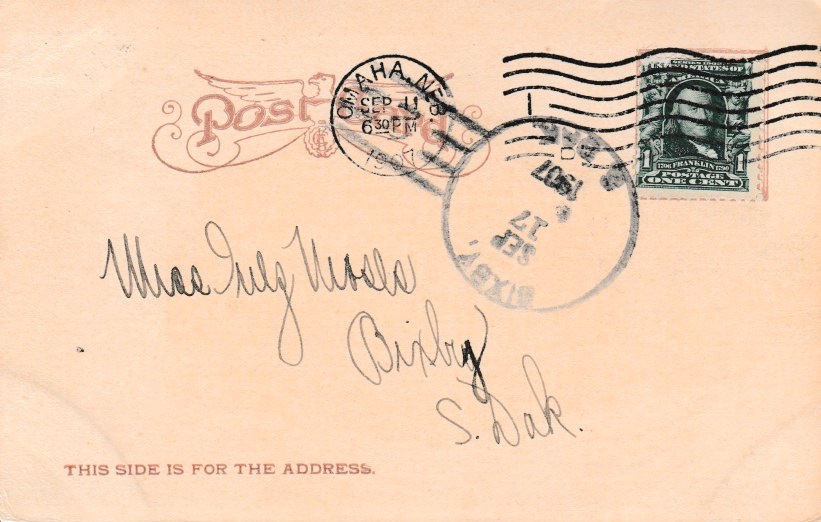 Post Card
OMAHA, NEB.
SEP 11
6 30 PM
1907
1
SERIES 1902
UNITED STATES OF
AMERICA
1706 FRANKLIN 1790
POSTAGE
ONE CENT
1
BIXBY,
SEP
17
1907
S. DAK.
Miss
Bixby
S. Dak.
THIS SIDE IS FOR THE ADDRESS.